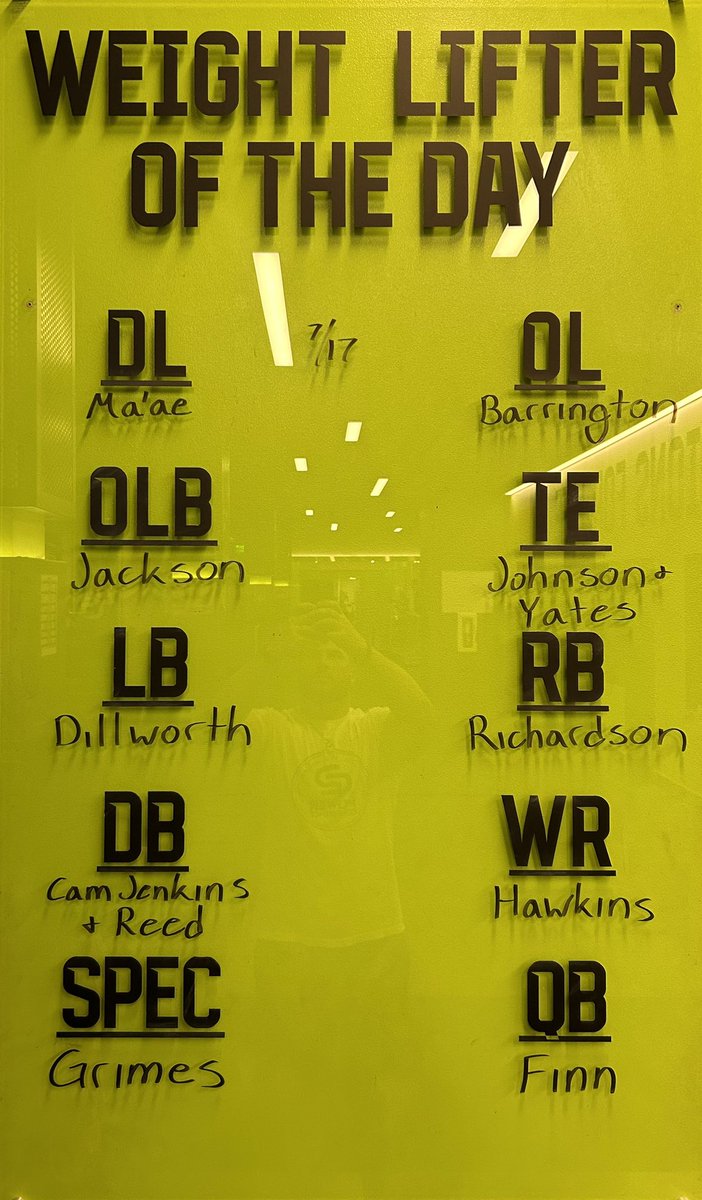 WEIGHT LIFTER
OF THE DAY
7/17
DL
Ma'ae
OL
Barrington
OLB
Jackson
TE
Johnson +
Yates
LB
Dillworth
RB
Richardson
DB
Cam Jenkins
+ Reed
WR
Hawkins
SPEC
Grimes
QB
Finn